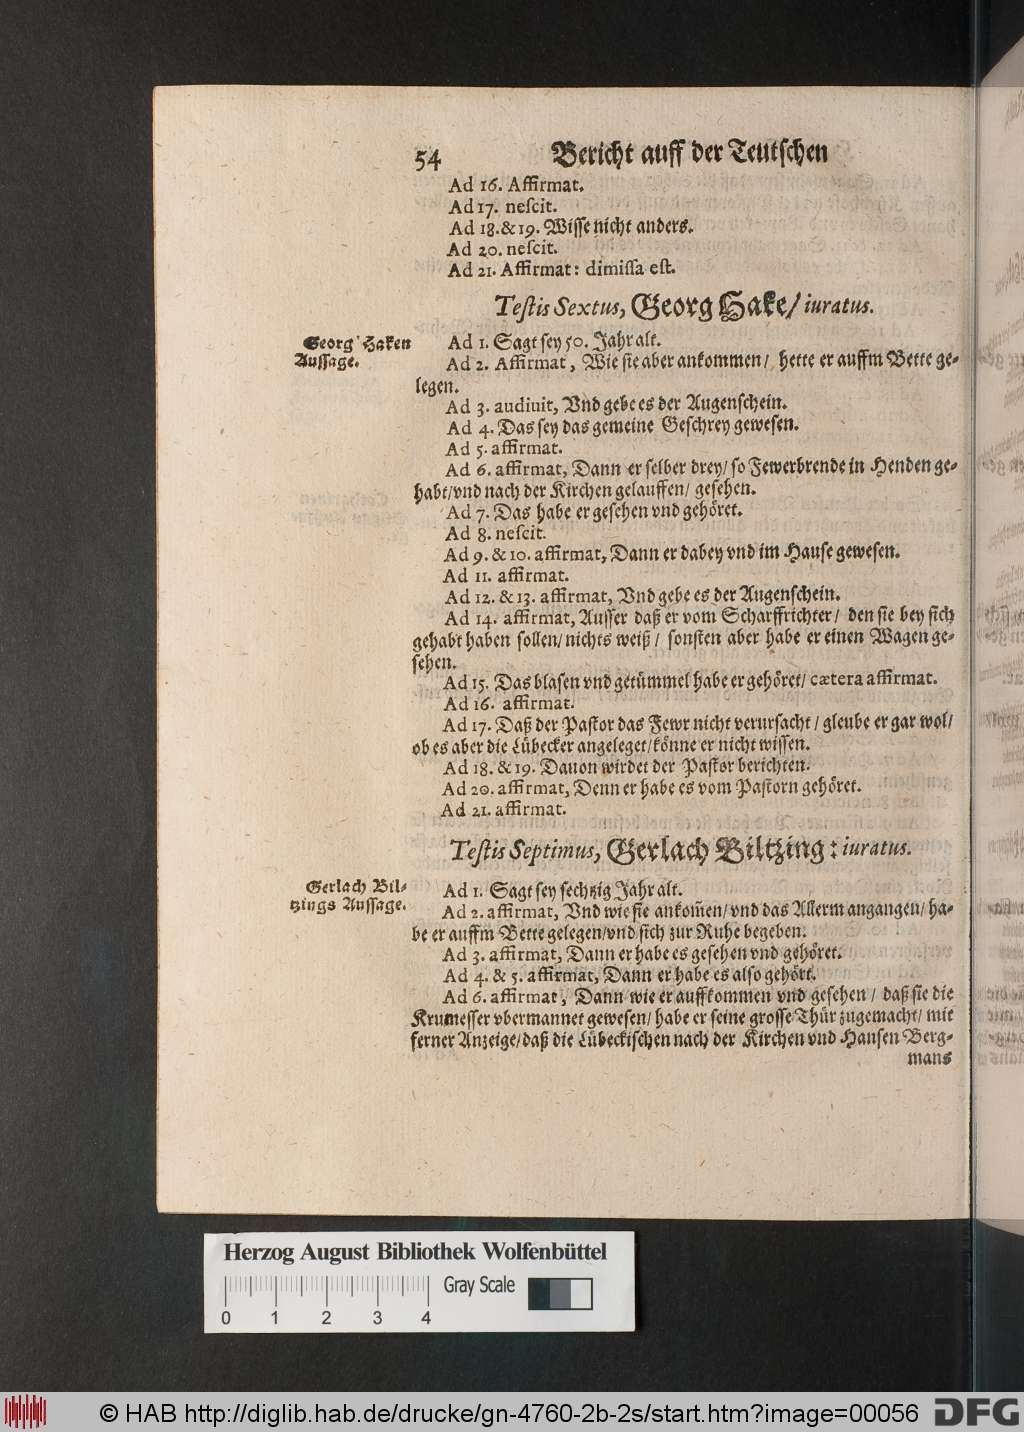 54 Bericht auff der Teutschen
Ad 16. Affirmat.
Ad 17. nescit.
Ad 18. & 19. Wisse nicht anders.
Ad 20. nescit.
Ad 21. Affirmat: dimissa est.
Testis Sextus, Georg Hake/ iuratus.
Georg Haken
Aussage.
Ad 1. Sagt sey 50. Jahr alt.
Ad 2. Affirmat, Wie sie aber ankommen/ hette er auffm Bette ge-
legen.
Ad 3. audiuit, Vnd gebe es der Augenschein.
Ad 4. Das sey das gemeine Geschrey gewesen.
Ad 5. affirmat.
Ad 6. affirmat, Dann er selber drey/ so Fewerbrende in Henden ge-
habt/vnd nach der Kirchen gelauffen/ gesehen.
Ad 7. Das habe er gesehen vnd gehöret.
Ad 8. nescit.
Ad 9. & 10. affirmat, Dann er dabey vnd im Hause gewesen.
Ad 11. affirmat.
Ad 12. & 13. affirmat, Vnd gebe es der Augenschein.
Ad 14. affirmat, Ausser daß er vom Scharffrichter/ den sie bey sich
gehabt haben sollen/ nichts weiß/ sonsten aber habe er einen Wagen ge-
sehen.
Ad 15. Das blasen vnd getümmel habe er gehöret/ cætera affirmat.
Ad 16. affirmat.
Ad 17. Daß der Pastor das Fewr nicht verursacht/ gleube er gar wol/
ob es aber die Lübecker angeleget/könne er nicht wissen.
Ad 18. & 19. Dauon wirdet der Pastor berichten.
Ad 20. affirmat, Denn er habe es vom Pastorn gehöret.
Ad 21. affirmat.
Testis Septimus, Gerlach Biltzing: iuratus.
Gerlach Bil-
tzings Aussage.
Ad 1. Sagt sey sechtzig Jahr alt.
Ad 2. affirmat, Vnd wie sie ankom̃en/ vnd das Allerm angangen/ ha-
be er auffm Bette gelegen/vnd sich zur Ruhe begeben.
Ad 3. affirmat, Dann er habe es gesehen vnd gehöret.
Ad 4. & 5. affirmat, Dann er habe es also gehört.
Ad 6. affirmat, Dann wie er auffkommen vnd gesehen/ daß sie die
Krumesser vbermannet gewesen/ habe er seine grosse Thür zugemacht/ mit
ferner Anzeige/daß die Lübeckischen nach der Kirchen vnd Hansen Berg-
mans
Herzog August Bibliothek Wolfenbüttel
Gray Scale
0 1 2 3 4
© HAB http://diglib.hab.de/drucke/gn-4760-2b-2s/start.htm?image=00056 DFG